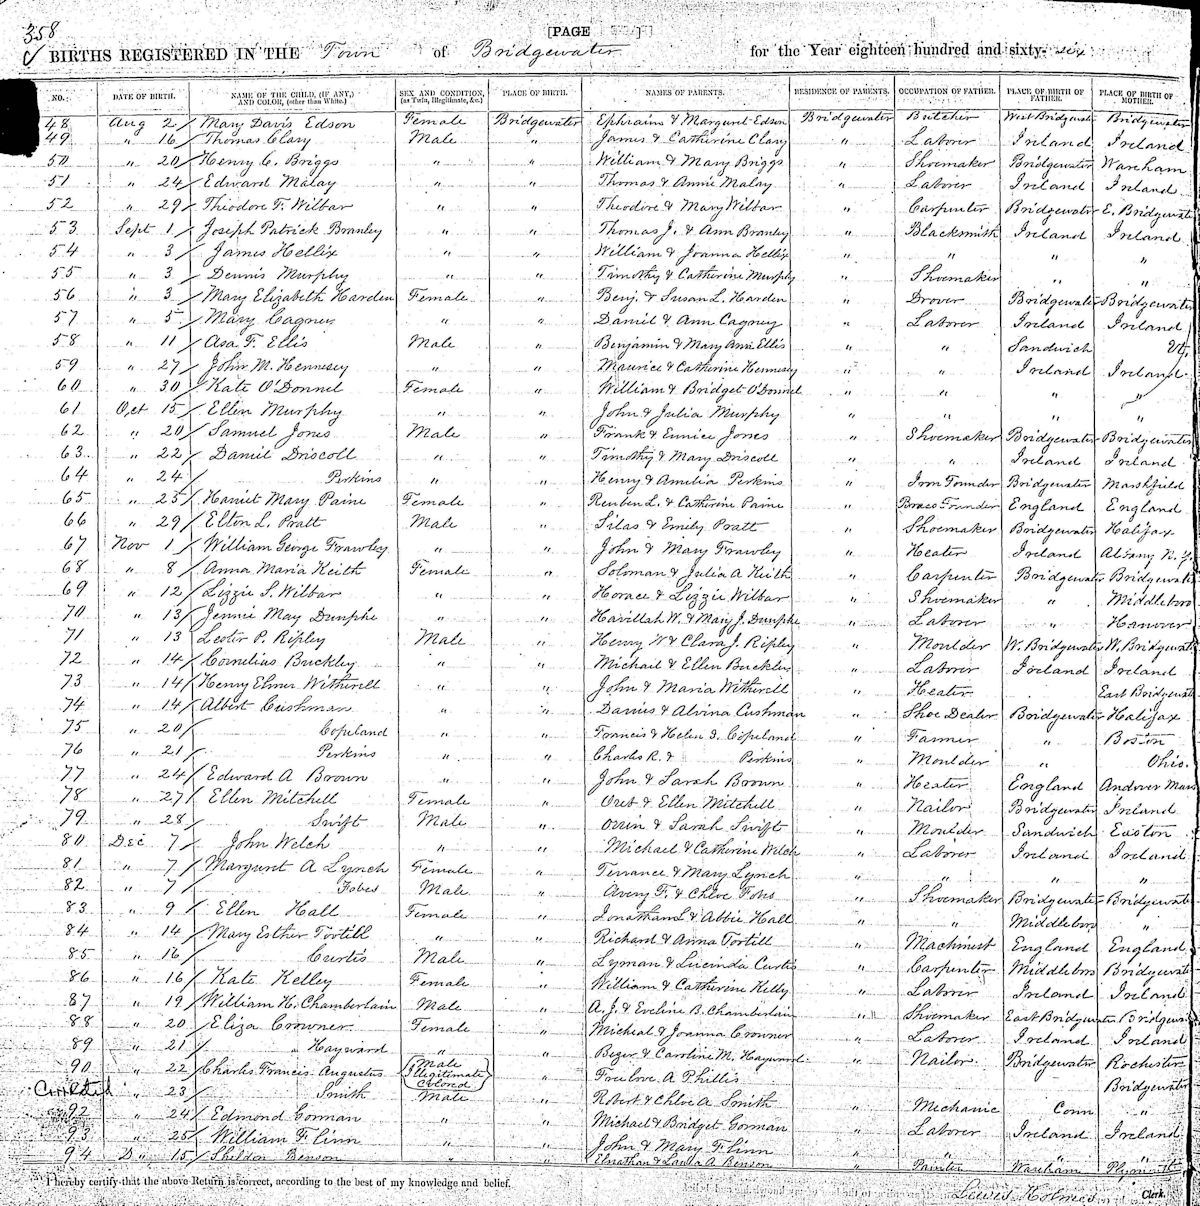 358
[PAGE ]
BIRTHS REGISTERED IN THE Town of Bridgewater for the Year eighteen hundred and sixty-six
NO. DATE OF BIRTH. NAME OF THE CHILD, (IF ANY,) AND COLOR, (other than White.) SEX AND CONDITION, (as Twin, Illegitimate, &c.) PLACE OF BIRTH. NAMES OF PARENTS. RESIDENCE OF PARENTS. OCCUPATION OF FATHER. PLACE OF BIRTH OF FATHER. PLACE OF BIRTH OF MOTHER.
48 Aug 2 Mary Davis Edson Female Bridgewater Ephraim & Margaret Edson Bridgewater Butcher West Bridgewater Bridgewater
49 " 16 Thomas Clary Male " James & Catherine Clary " Laborer Ireland Ireland
50 " 20 Henry C. Briggs " " William & Mary Briggs " Shoemaker Bridgewater Wareham
51 " 24 Edward Malay " " Thomas & Annie Malay " Laborer Ireland Ireland
52 " 29 Theodore F. Wilbar " " Theodore & Mary Wilbar " Carpenter Bridgewater E. Bridgewater
53 Sept 1 Joseph Patrick Branley " " Thomas J. & Ann Branley " Blacksmith Ireland Ireland
54 " 3 James Hellix " " William & Joanna Hellix " " " "
55 " 3 Dennis Murphy " " Timothy & Catherine Murphy " Shoemaker " "
56 " 3 Mary Elizabeth Harden Female " Benj. & Susan L. Harden " Drover Bridgewater Bridgewater
57 " 5 Mary Cagney " " Daniel & Ann Cagney " Laborer Ireland Ireland
58 " 11 Asa F. Ellis Male " Benjamin & Mary Ann Ellis " " Sandwich Vt.
59 " 27 John M. Hennesey " " Maurice & Catherine Hennesey " " Ireland Ireland
60 " 30 Kate O'Donnel Female " William & Bridget O'Donnel " " " "
61 Oct 15 Ellen Murphy " " John & Julia Murphy " " " "
62 " 20 Samuel Jones Male " Frank & Eunice Jones " Shoemaker Bridgewater Bridgewater
63 " 22 Daniel Driscoll " " Timothy & Mary Driscoll " " Ireland Ireland
64 " 24 Perkins " " Henry & Amelia Perkins " Iron Founder Bridgewater Marshfield
65 " 25 Harriet Mary Paine Female " Reuben L. & Catherine Paine " Brass Founder England England
66 " 29 Elton L. Pratt Male " Silas & Emily Pratt " Shoemaker Bridgewater Halifax
67 Nov 1 William George Frawley " " John & Mary Frawley " Heater Ireland Albany N.Y.
68 " 8 Anna Maria Keith Female " Soloman & Julia A Keith " Carpenter Bridgewater Bridgewater
69 " 12 Lizzie S. Wilbar " " Horace & Lizzie Wilbar " Shoemaker " Middleboro
70 " 13 Jennie May Dunphe " " Havillah W. & Mary J. Dunphe " Laborer " Hanover
71 " 13 Lester P. Ripley Male " Henry W & Clara J. Ripley " Moulder W. Bridgewater W. Bridgewater
72 " 14 Cornelius Buckley " " Michael & Ellen Buckley " Laborer Ireland Ireland
73 " 14 Henry Elmer Witherell " " John & Maria Witherell " Heater East Bridgewater
74 " 14 Albert Cushman " " Darius & Alvina Cushman " Shoe Dealer Bridgewater Halifax
75 " 20 Copeland " " Francis & Helen I. Copeland " Farmer " Boston
76 " 21 Perkins " " Charles R. & Perkins " Moulder " Ohio.
77 " 24 Edward A Brown " " John & Sarah Brown " Heater England Andover Mass
78 " 27 Ellen Mitchell Female " Oret & Ellen Mitchell " Nailor Bridgewater Ireland
79 " 28 Swift Male " Orrin & Sarah Swift " Moulder Sandwich Easton
80 Dec 7 John Welch " " Michael & Catherine Welch " Laborer Ireland Ireland
81 " 7 Margaret A Lynch Female " Terrance & Mary Lynch " " " "
82 " 7 Fobes Male " Avery F. & Chloe Fobs " Shoemaker Bridgewater Bridgewater
83 " 9 Ellen Hall Female " Jonathan L & Abbie Hall " " Middleboro "
84 " 14 Mary Esther Tortill " " Richard & Anna Tortill " Machinest England England
85 " 16 Curtis Male " Lyman & Lucinda Curtis " Carpenter Middleboro Bridgewater
86 " 16 Kate Kelley Female " William & Catherine Kelly " Laborer Ireland Ireland
87 " 19 William H. Chamberlain Male " A. J. & Eveline B. Chamberlain " Shoemaker East Bridgewater Bridgewater
88 " 20 Eliza Crowner Female " Micheal & Joanna Crowner " Laborer Ireland Ireland
89 " 21 " Hayward " " Bezer & Caroline M. Hayward " Nailor Bridgewater Rochester
90 " 22 Charles Francis Augustus Male Illegitimate Colored " Truelove A Phillis Bridgewater
Corrected " 23 Smith Male " Robert & Chloe A Smith " Mechanic Conn "
92 " 24 Edmond Gorman " " Michael & Bridget Gorman " Laborer Ireland Ireland
93 " 25 William Flinn " " John & Mary Flinn " " " "
94 D " 15 Sheldon Benson " " Elnathan & Laura A Benson " Painter Wareham Plymouth
I hereby certify that the above Return is correct, according to the best of my knowledge and belief.
Lewis Holmes Clerk.